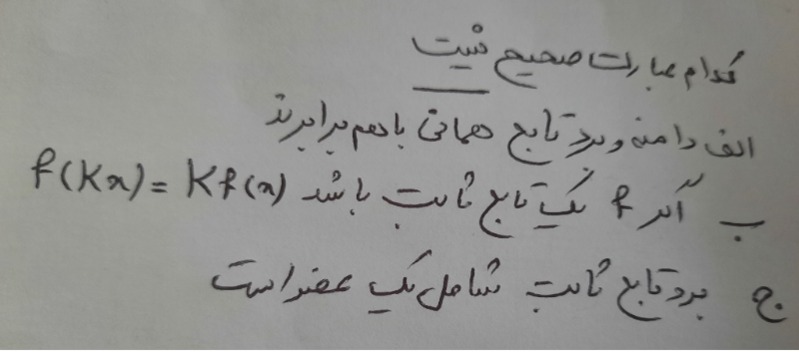 کدام عبارت صحیح نیست
الف دامنه و برد تابع همانی با هم برابرند
ب اگر f یک تابع ثابت باشد f(Kx) = Kf(x)
ج برد تابع ثابت شامل یک عضو است